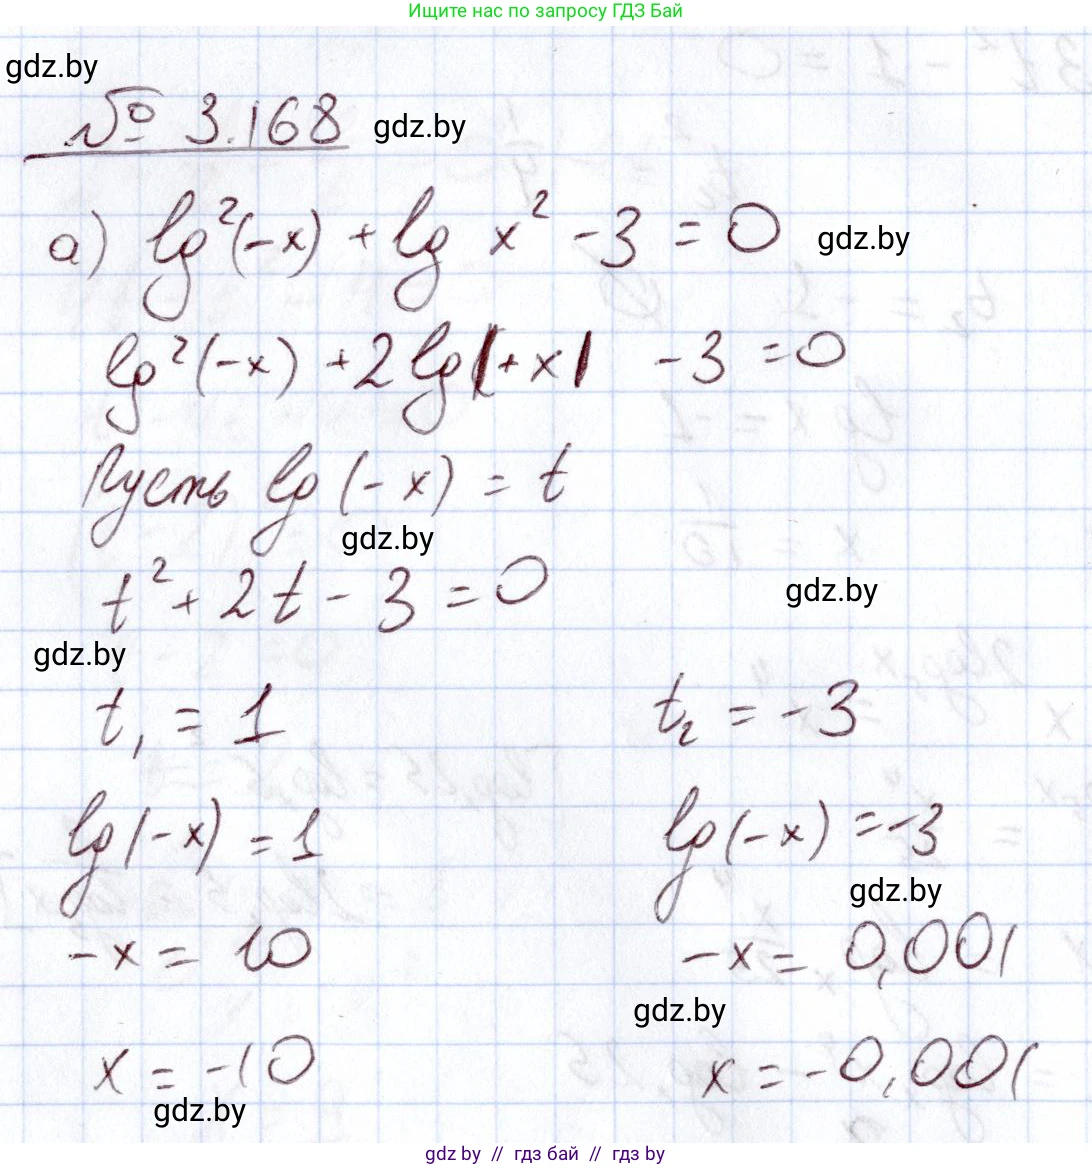 Ищите нас по запросу ГДЗ Бай
gdz.by
№ 3.168 gdz.by
а) lg²(-x) + lg x² - 3 = 0 gdz.by
lg²(-x) + 2 lg |+x| - 3 = 0
Пусть lg (-x) = t
gdz.by
t² + 2t - 3 = 0 gdz.by
gdz.by
t₁ = 1 t₂ = -3
lg(-x) = 1 lg(-x) = -3
gdz.by
-x = 10 -x = 0,001
gdz.by
x = -10 x = -0,001
gdz.by
gdz.by // гдз бай // гдз by